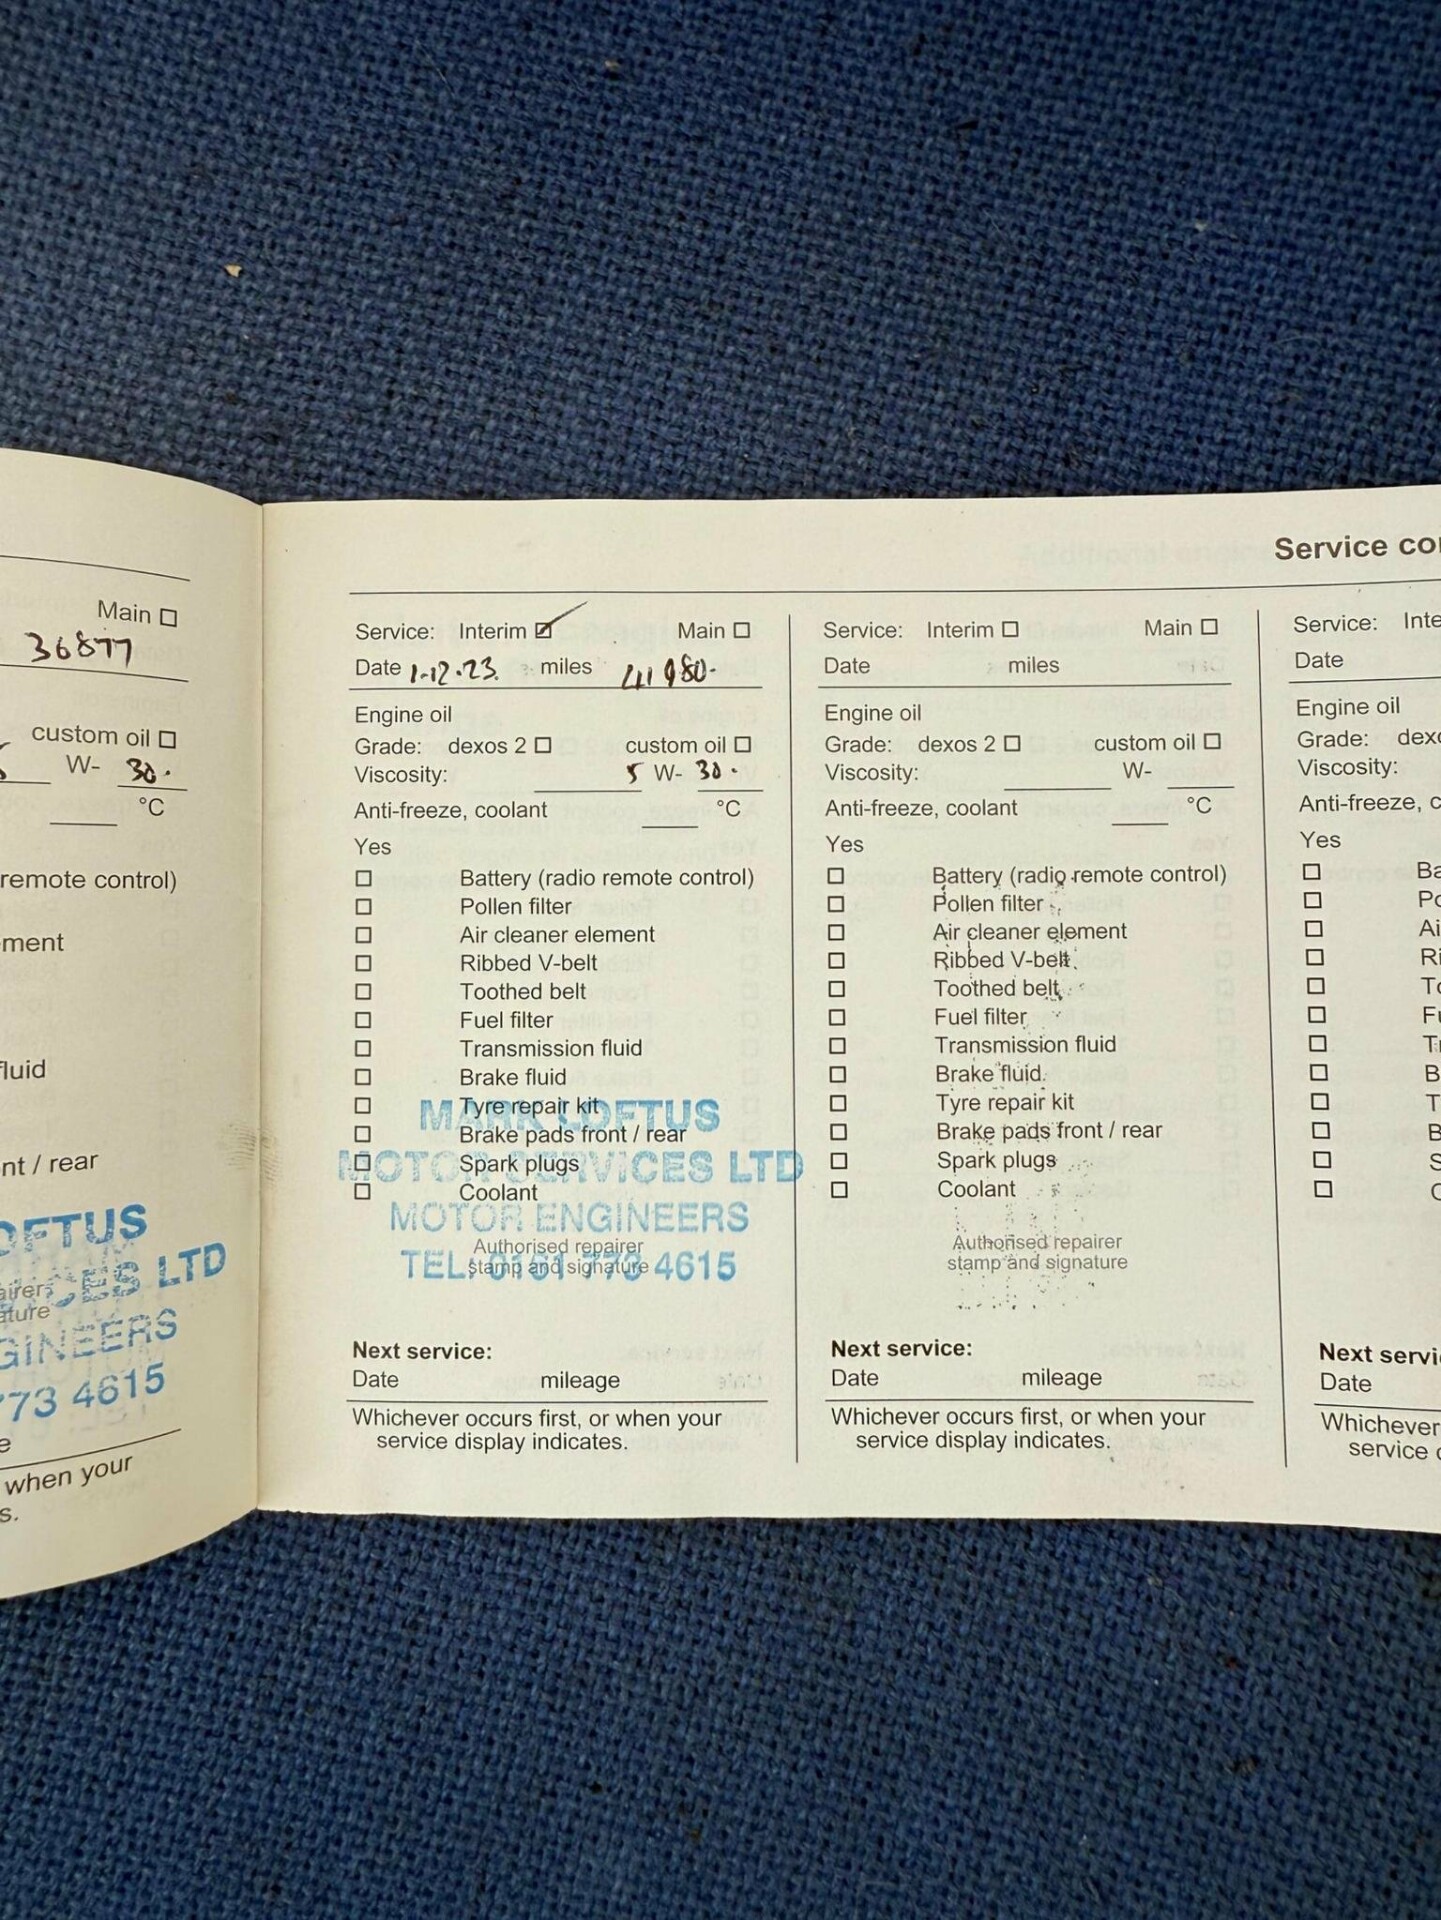 Main
36877
custom oil
W- 30.
°C
remote control)
ment
fluid
nt / rear
OFTUS
ICES LTD
GINEERS
773 4615
when your
s.
Service: Interim Main
Date 1.12.23. miles 41980.
Engine oil
Grade: dexos 2 custom oil
Viscosity: 5 W- 30.
Anti-freeze, coolant °C
Yes
Battery (radio remote control)
Pollen filter
Air cleaner element
Ribbed V-belt
Toothed belt
Fuel filter
Transmission fluid
Brake fluid
Tyre repair kit
Brake pads front / rear
Spark plugs
Coolant
MARK LOFTUS
MOTOR SERVICES LTD
MOTOR ENGINEERS
TEL: 0161 773 4615
Authorised repairer
stamp and signature
Next service:
Date mileage
Whichever occurs first, or when your
service display indicates.
Service: Interim Main
Date miles
Engine oil
Grade: dexos 2 custom oil
Viscosity: W-
Anti-freeze, coolant °C
Yes
Battery (radio remote control)
Pollen filter
Air cleaner element
Ribbed V-belt
Toothed belt
Fuel filter
Transmission fluid
Brake fluid
Tyre repair kit
Brake pads front / rear
Spark plugs
Coolant
Authorised repairer
stamp and signature
Next service:
Date mileage
Whichever occurs first, or when your
service display indicates.
Service co
Service: Inte
Date
Engine oil
Grade: dexo
Viscosity:
Anti-freeze, c
Yes
Ba
Po
Ai
Ri
To
Fu
Tr
B
T
B
S
C
Next servi
Date
Whichever
service